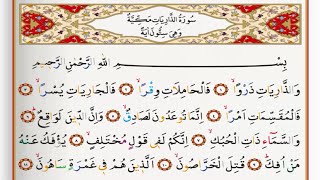 سُورَةُ الذَّارِيَاتِ مَكِّيَّةٌ
وَهِيَ سِتُّونَ اٰيَةً
بِسْمِ اللّٰهِ الرَّحْمٰنِ الرَّحِيمِ
وَالذَّارِيَاتِ ذَرْوًاۙ ﴿١﴾ فَالْحَامِلَاتِ وِقْرًاۙ ﴿٢﴾ فَالْجَارِيَاتِ يُسْرًاۙ ﴿٣﴾
فَالْمُقَسِّمَاتِ اَمْرًاۙ ﴿٤﴾ اِنَّمَا تُوعَدُونَ لَصَادِقٌۙ ﴿٥﴾ وَاِنَّ الدِّينَ لَوَاقِعٌۜ ﴿٦﴾
وَالسَّمَٓاءِ ذَاتِ الْحُبُكِۙ ﴿٧﴾ اِنَّكُمْ لَفِي قَوْلٍ مُخْتَلِفٍۙ ﴿٨﴾ يُؤْفَكُ عَنْهُ
مَنْ اُفِكَۜ ﴿٩﴾ قُتِلَ الْخَرَّاصُونَۙ ﴿١٠﴾ اَلَّذِينَ هُمْ فِي غَمْرَةٍ سَاهُونَۙ ﴿١١﴾